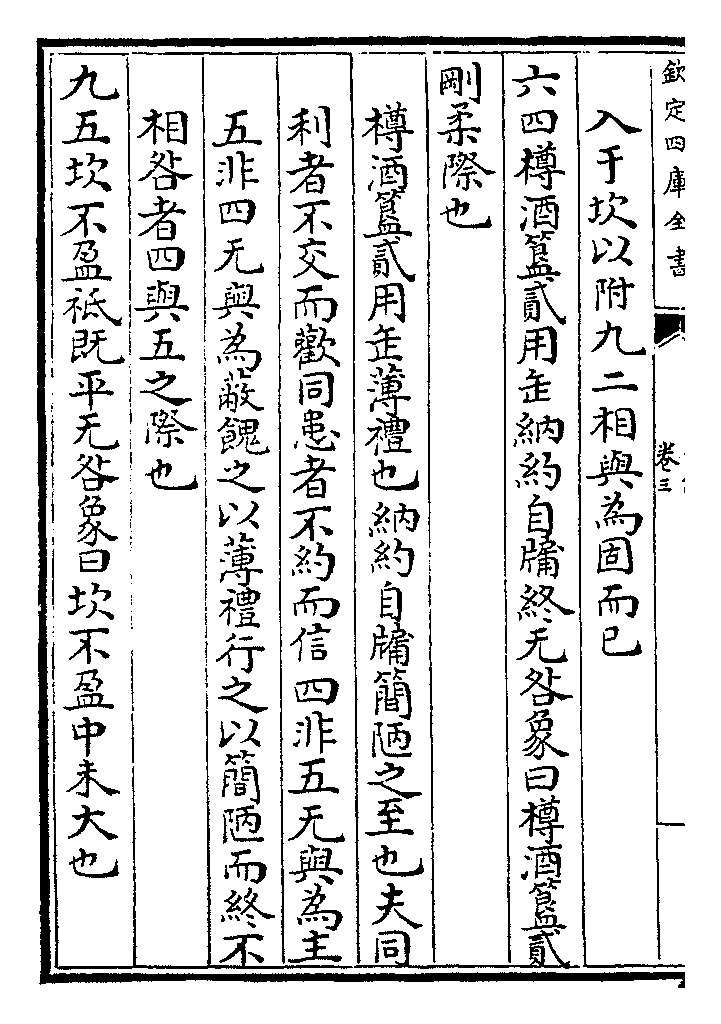 欽定四庫全書
卷三
入于坎以附九二相與為固而已
六四樽酒簋貳用缶納約自牖終无咎象曰樽酒簋貳
剛柔際也
樽酒簋貳用缶薄禮也納約自牖簡陋之至也夫同
利者不交而歡同患者不約而信四非五无與為主
五非四无與為蔽餽之以薄禮行之以簡陋而終不
相咎者四與五之際也
九五坎不盈祗既平无咎象曰坎不盈中未大也